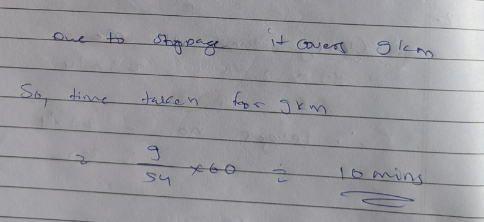 Due to stoppage it covers 9 km
So, time taken for 9km
= 9/54 × 60 = 10 mins